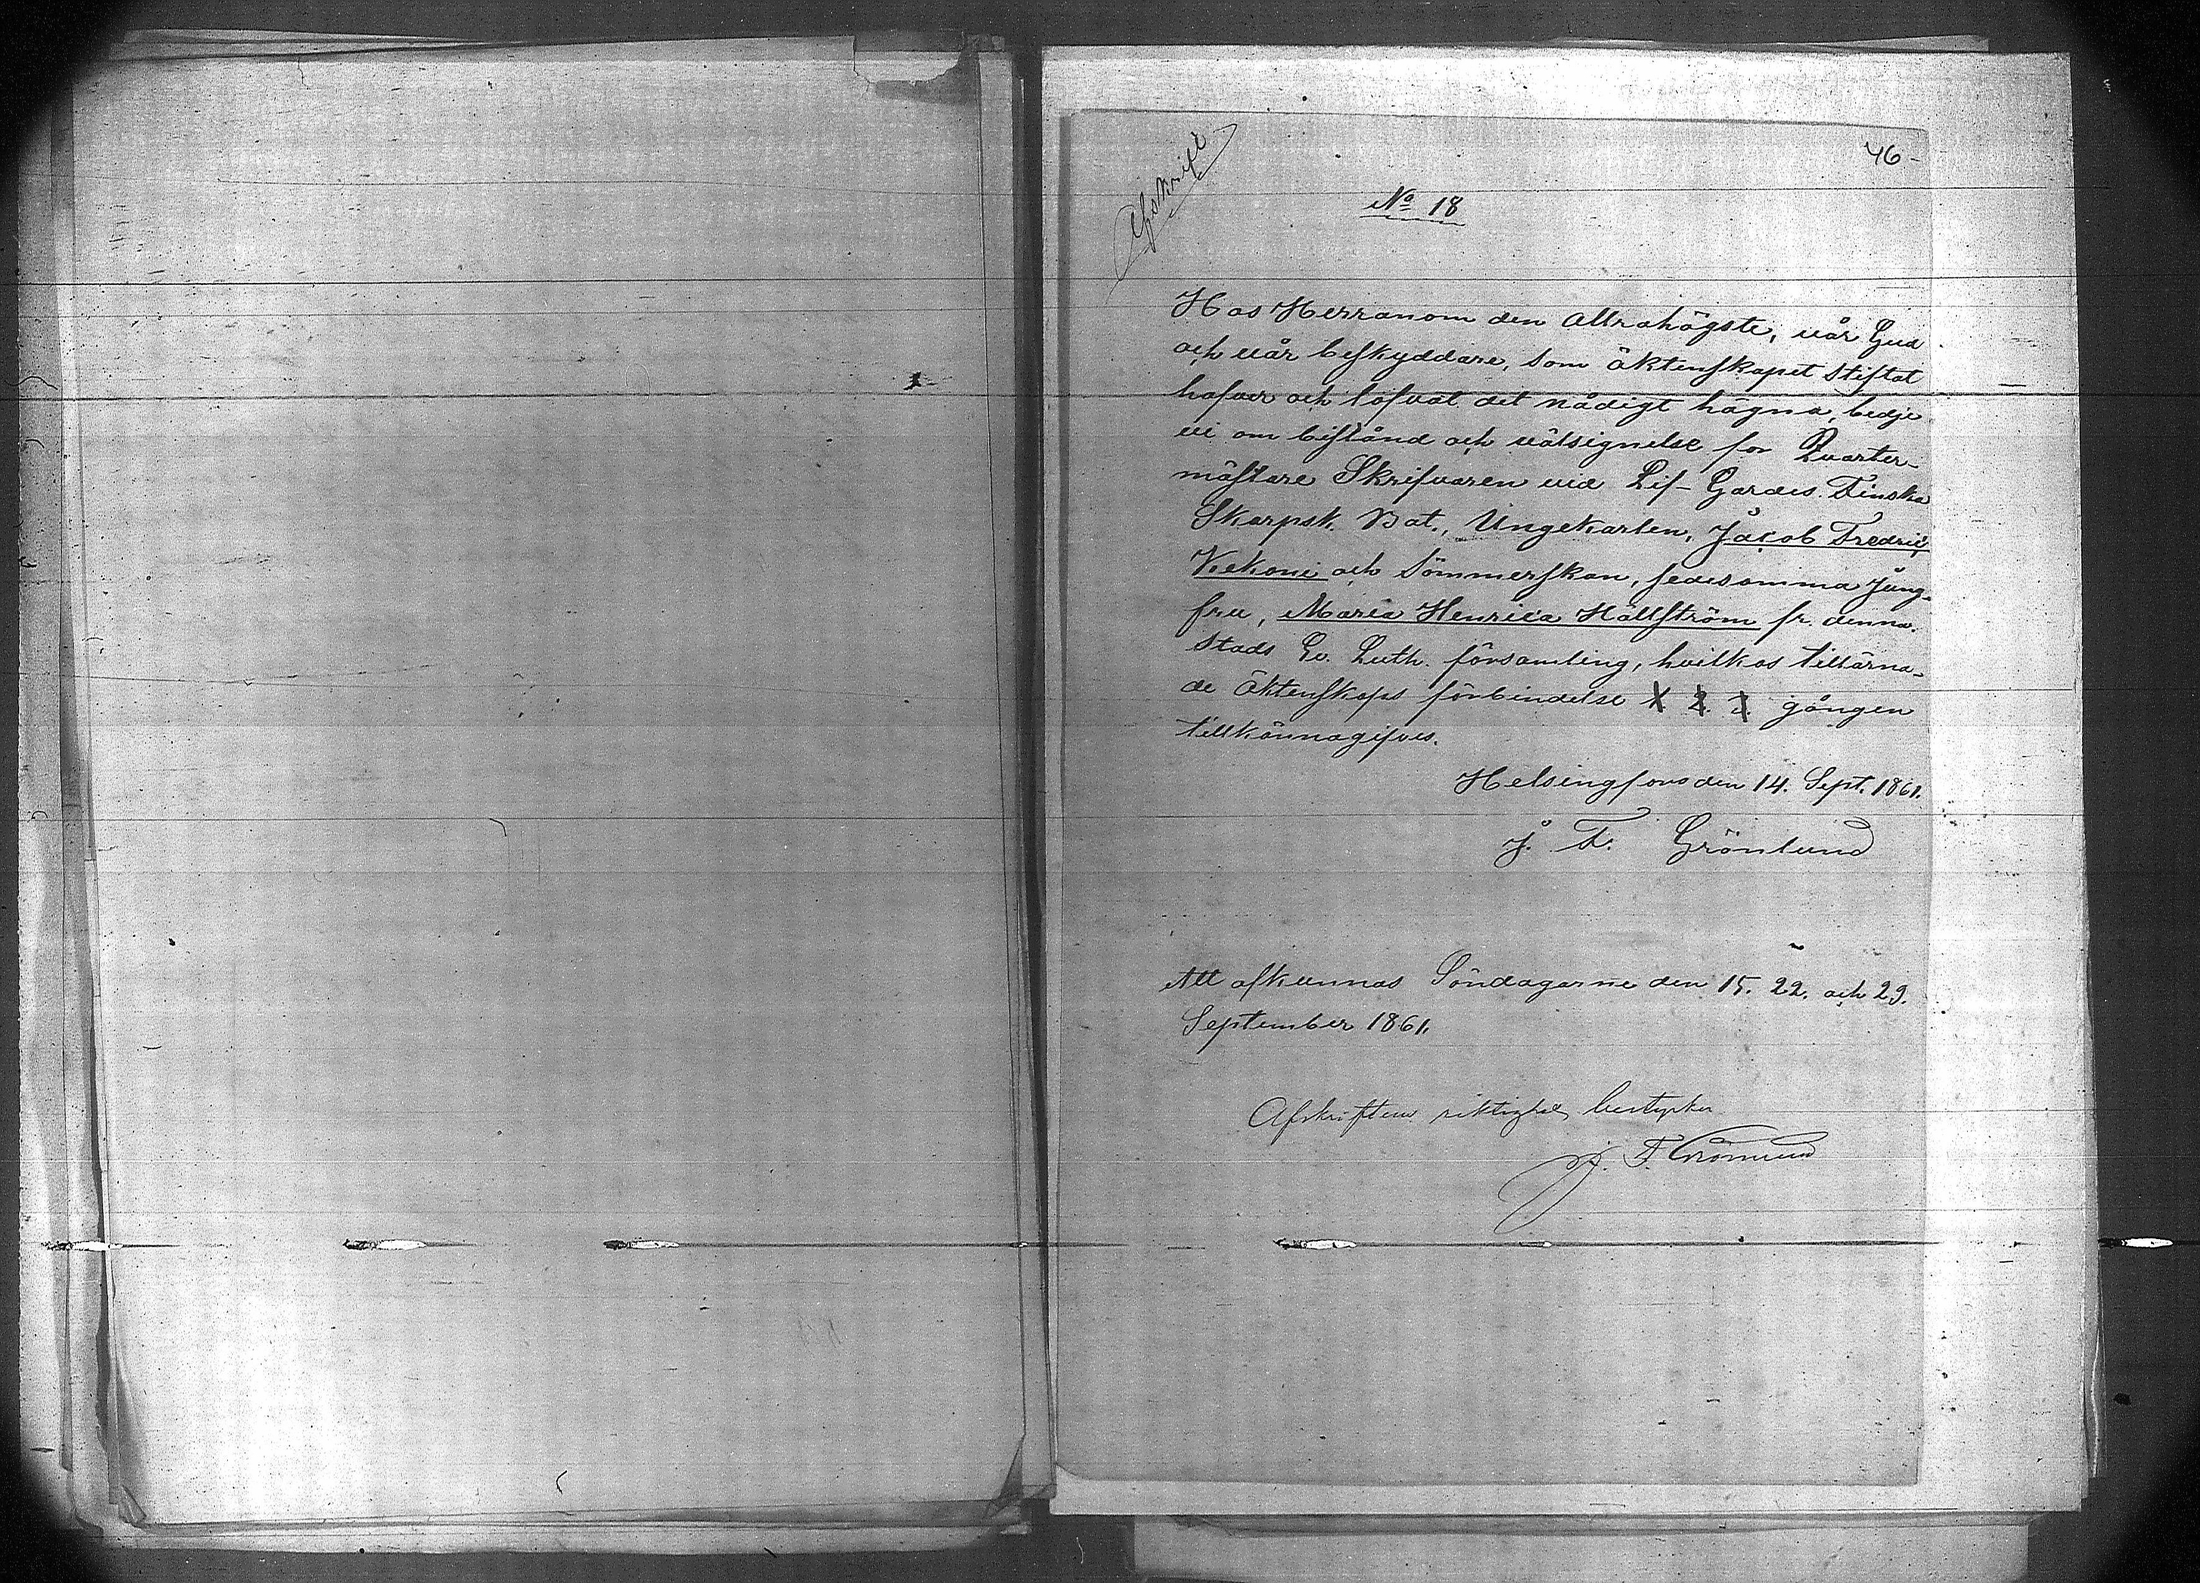 Afskrift
46-
No 18
Hos Herranom den Allrahögste, vår Gud
och vår beskyddare, som äktenskapet stiftat
hafver och lofvat det nådigt hägna, bedje
vi om bistånd och välsignelse för Qvarter-
mästare Skrifvaren vid Lif-Gardes Finska
Skarpsk. Bat., Ungekarlen, Jacob Fredric
Kekoni och Sömmerskan, sedesamma Jung-
fru, Maria Henrica Hällström fr. denna
Stads Ev. Luth. församling, hvilkas tillärna-
de äktenskaps förbindelse 1 2. 3. gången
tillkännagifves.
Helsingfors den 14. Sept. 1861.
J. F. Grönlund
Att afkunnas Söndagarne den 15. 22. och 29.
September 1861.
Afskriftens riktighet bestyrker
J. F. Grönlund